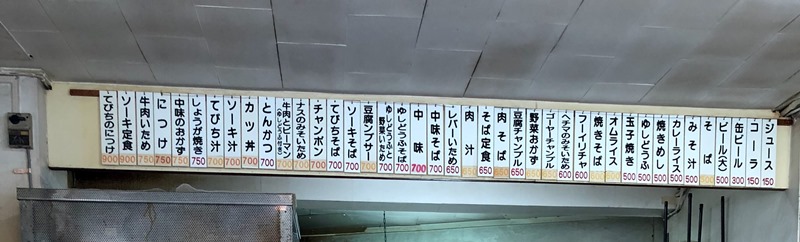 ジュース 150
コーラ 150
缶ビール 300
ビール(大) 500
そば 500
みそ汁 500
カレーライス 500
焼きめし 500
ゆしどうふ 500
玉子焼き 500
オムライス
焼きそば
フーイリチャ 600
ヘチマのみそいため 600
ゴーヤーチャンプル
野菜おかず
豆腐チャンプル 650
肉そば
そば定食 650
肉汁
レバーいため 650
中味そば 700
中味 700
ゆしどうふそば 700
豆腐ンブサー 700
ソーキそば 700
てびちそば 700
チャンポン 700
ナスのみそいため 700
牛肉とピーマン
とんかつ 700
カツ丼 700
ソーキ汁 700
てびち汁 700
しょうが焼き 750
中味のおかず 750
につけ 750
牛肉いため 750
ソーキ定食 900
てびちのにつけ 900